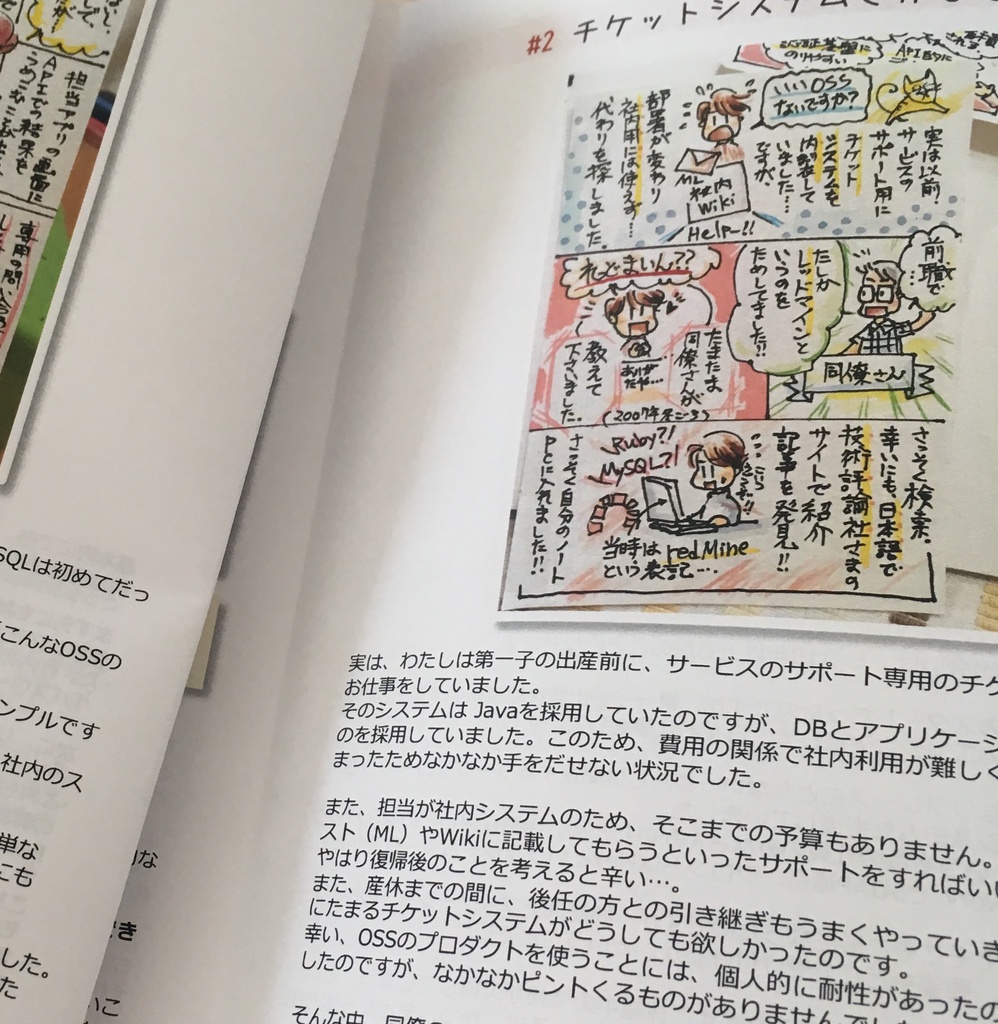 #2 チケットシステム
いいOSS
ないですか？
実は以前、
サービスの
サポート用に
チケット
システムを
内製して
いました…
ですが、
部署が変わり
社内用には使えず…
代わりを探しました。
ML
社内
Wiki
Help-!!
前職で…
たしか
レッドマインと
いうのを
ためしてました!!
同僚さん
れっどまいん??
たまたま
同僚さんが
教えて
下さいました。
(2007年末ごろ)
さっそく検索。
幸いにも、日本語で
技術評論社さまの
サイトで紹介
記事を発見!!
Ruby?!
MySQL?!
当時は redMine
という表記…
さっそく自分のノート
PCに入れました!!
担当アプリの画面に
APIでの結果を
専用の問い合わ
SQLは初めてだっ
こんなOSSの
ンプルです
社内のス
単な
にも
した。
た
な
き
いこ
実は、わたしは第一子の出産前に、サービスのサポート専用のチケ
お仕事をしていました。
そのシステムは Javaを採用していたのですが、DBとアプリケーシ
のを採用していました。このため、費用の関係で社内利用が難しく
まったためなかなか手をだせない状況でした。
また、担当が社内システムのため、そこまでの予算もありません。
スト（ML）やWikiに記載してもらうといったサポートをすればいい
やはり復帰後のことを考えると辛い…。
また、産休までの間に、後任の方との引き継ぎもうまくやっていき
にたまるチケットシステムがどうしても欲しかったのです。
幸い、OSSのプロダクトを使うことには、個人的に耐性があったの
したのですが、なかなかピントくるものがありませんでし
そんな中、同僚の